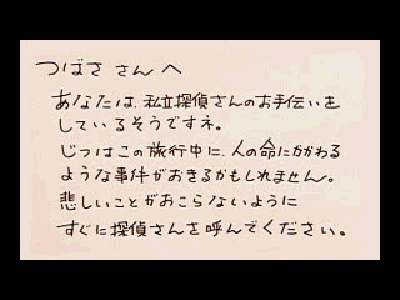 つばささんへ
あなたは、私立探偵さんのお手伝いを
しているそうですネ。
じつはこの旅行中に、人の命にかかわる
ような事件がおきるかもしれません。
悲しいことがおこらないように
すぐに探偵さんを呼んでください。